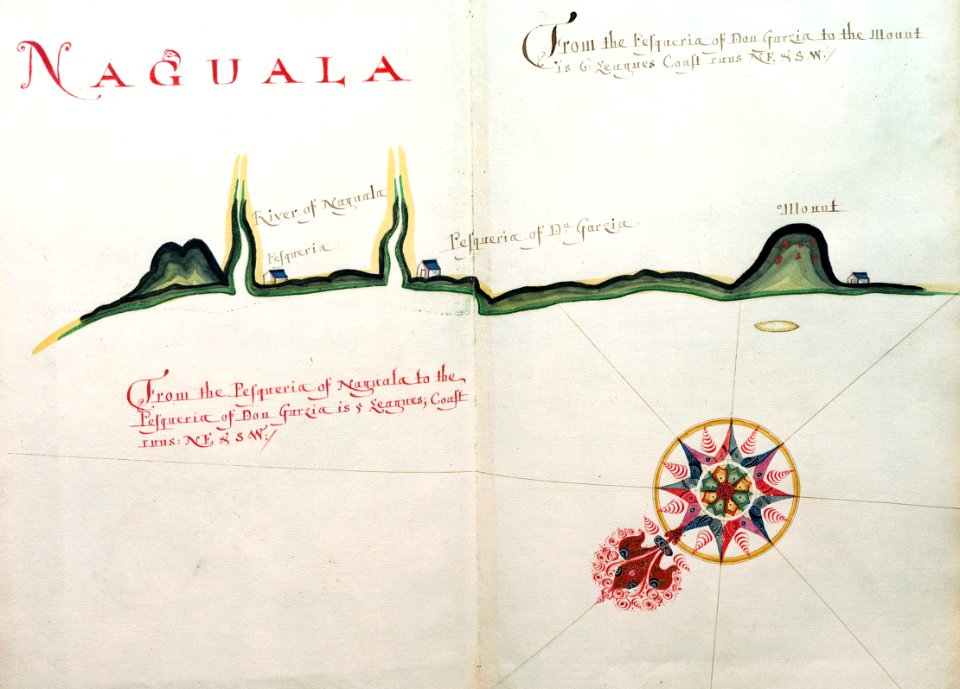 NAGUALA
From the Pesqueria of Don Garzia to the Mount
is 6: Leagues Coast runs N.E. & S.W:/
River of Naguala
Pesqueria
Pesqueria of Dn Garzia
Mount
From the Pesqueria of Naguala to the
Pesqueria of Don Garzia is Leagues; Coast
runs: N.E. & S W:/